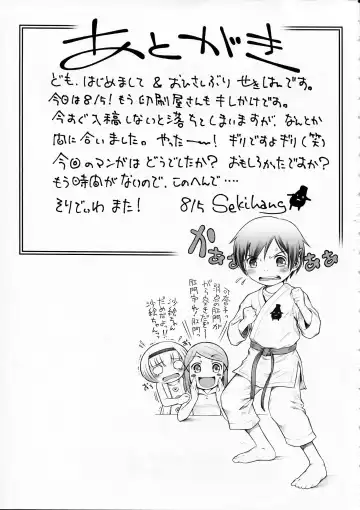 あとがき
ども、はじめまして & おひさしぶり せきはんです。
今日は8/5! もう印刷屋さんもキレかけです。
今すぐ入稿しないと落ちてしまいますが、なんとか
間に合いました。やったー! ギリですよギリ(笑)
今回のマンガはどうでしたか? おもしろかったですか?
もう時間がないので、このへんで‥‥
そりでいわ また! 8/5 Sekihang
かぁぁぁぁ
ああ
弱点の肛門が
がら空きだもー!
肛門っ・肛門っ。
沙絵ちゃん
だめだよ!!
沙絵ちゃんっ